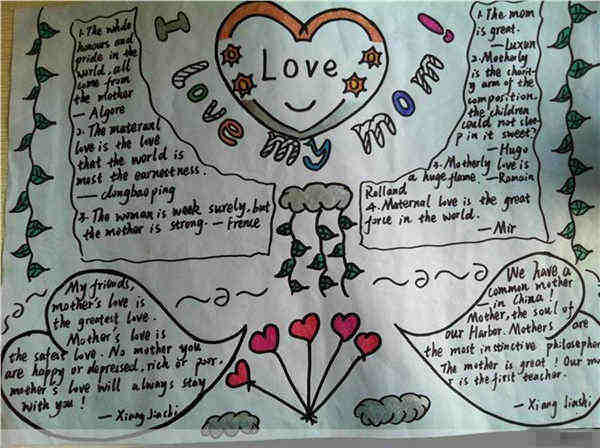 I love my mom!
Love
1. The whole
honours and
pride in the
world, all
come from
the mother
— Algore
2. The maternal
love is the love
that the world is
most the earnestness.
— dongbaoping
3. The woman is weak surely, but
the mother is strong. — Frence
1. The mom
is great.
— Luxun
2. Motherly
is the charit-
y arm of the
composition.
the children
could not slee-
p in it sweet?
— Hugo
3. Motherly love is
a huge flame. — Romain
Rolland
4. Maternal love is the great
force in the world.
— Mir
My friends,
mother's love is
the greatest love.
Mother's love is
the safest love. No mother you
are happy or depressed, rich or poor,
mother's love will always stay
with you!
— Xiang Jiashi
We have a
common mother
— in China!
Mother, the soul of
our Harbor. Mothers are
the most instinctive philosopher
The mother is great! Our m
r is the first teacher.
— Xiang Jiashi